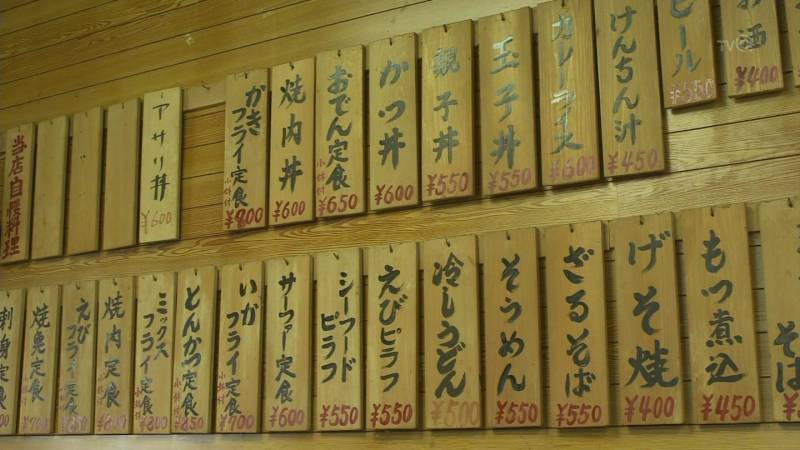 お酒
¥400
ビール
¥550
けんちん汁
¥450
カレーライス
¥600
玉子丼
¥550
親子丼
¥550
かつ丼
¥600
おでん定食
小鉢付
¥650
焼肉丼
¥600
かき
フライ定食
小鉢付
¥800
アサリ丼
¥600
当店自慢料理
そば
もつ煮込
¥450
げそ焼
¥400
ざるそば
¥550
そうめん
¥550
冷しうどん
¥500
えびピラフ
¥550
シーフード
ピラフ
¥550
サーファー定食
¥600
いか
フライ定食
¥700
とんかつ定食
小鉢付
¥850
ミックス
フライ定食
小鉢付
¥800
焼肉定食
小鉢付
¥800
えび
フライ定食
小鉢付
¥850
焼魚定食
¥700
刺身定食